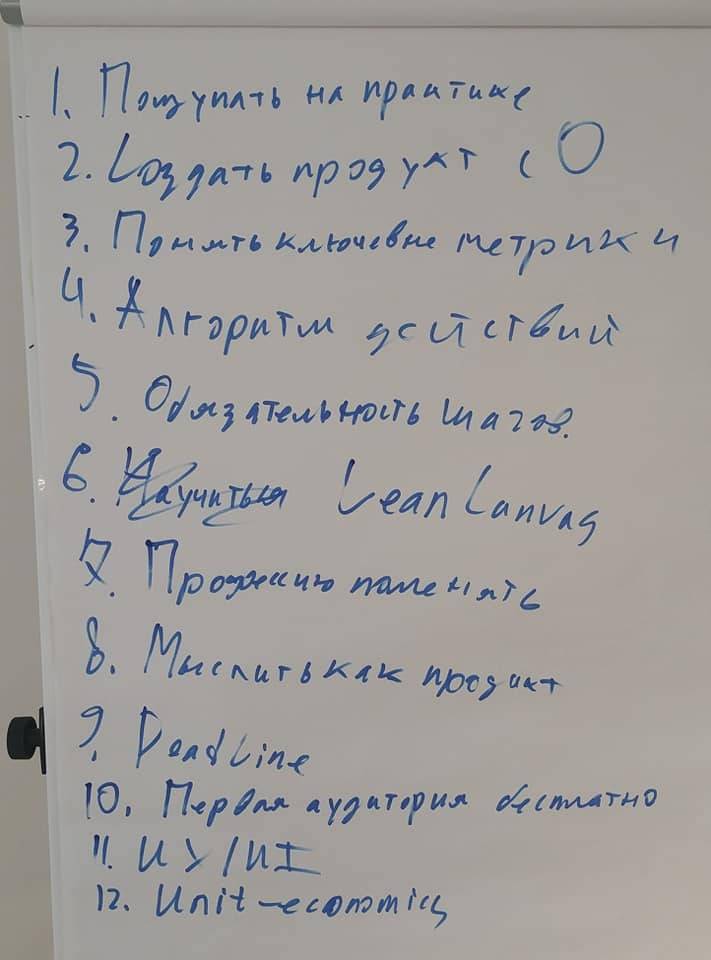 1. Пощупать на практике
2. Создать продукт с 0
3. Понять ключевые метрики
4. Алгоритм действий
5. Обязательность шагов.
6. Научиться Lean Canvas
7. поменять
8. Мыслить как продукт
9. Deadline
10. Первая аудитория бесплатно
11. UX/UI
12. Unit-economics